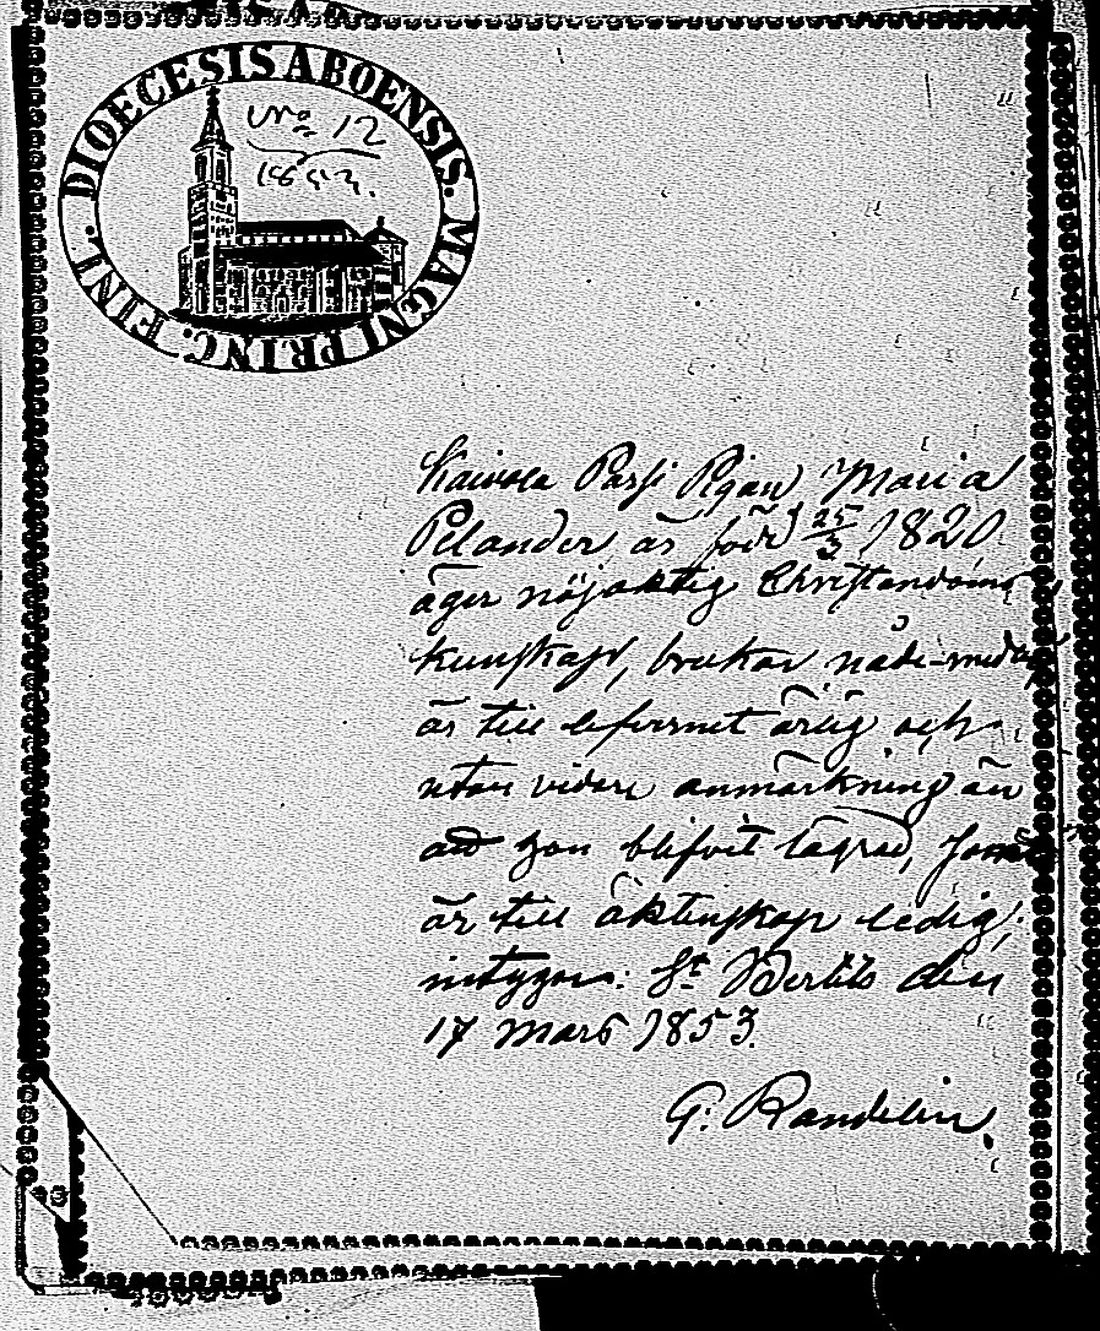 DIOECESIS ABOENSIS. MAGNI PRINC. FINL.
No 12
1853.
Pigan Maria
Pelander, är född 25/3 1820.
äger nöjaktig Christendoms
kunskap, brukar nåde-medlen
är till lefvernet ärlig och
utan vidare anmärkning än
att hon blifvit lägrad, samt
är till äktenskap ledig,
intygar: St Bertils den
17 Mars 1853.
G. Randelin.